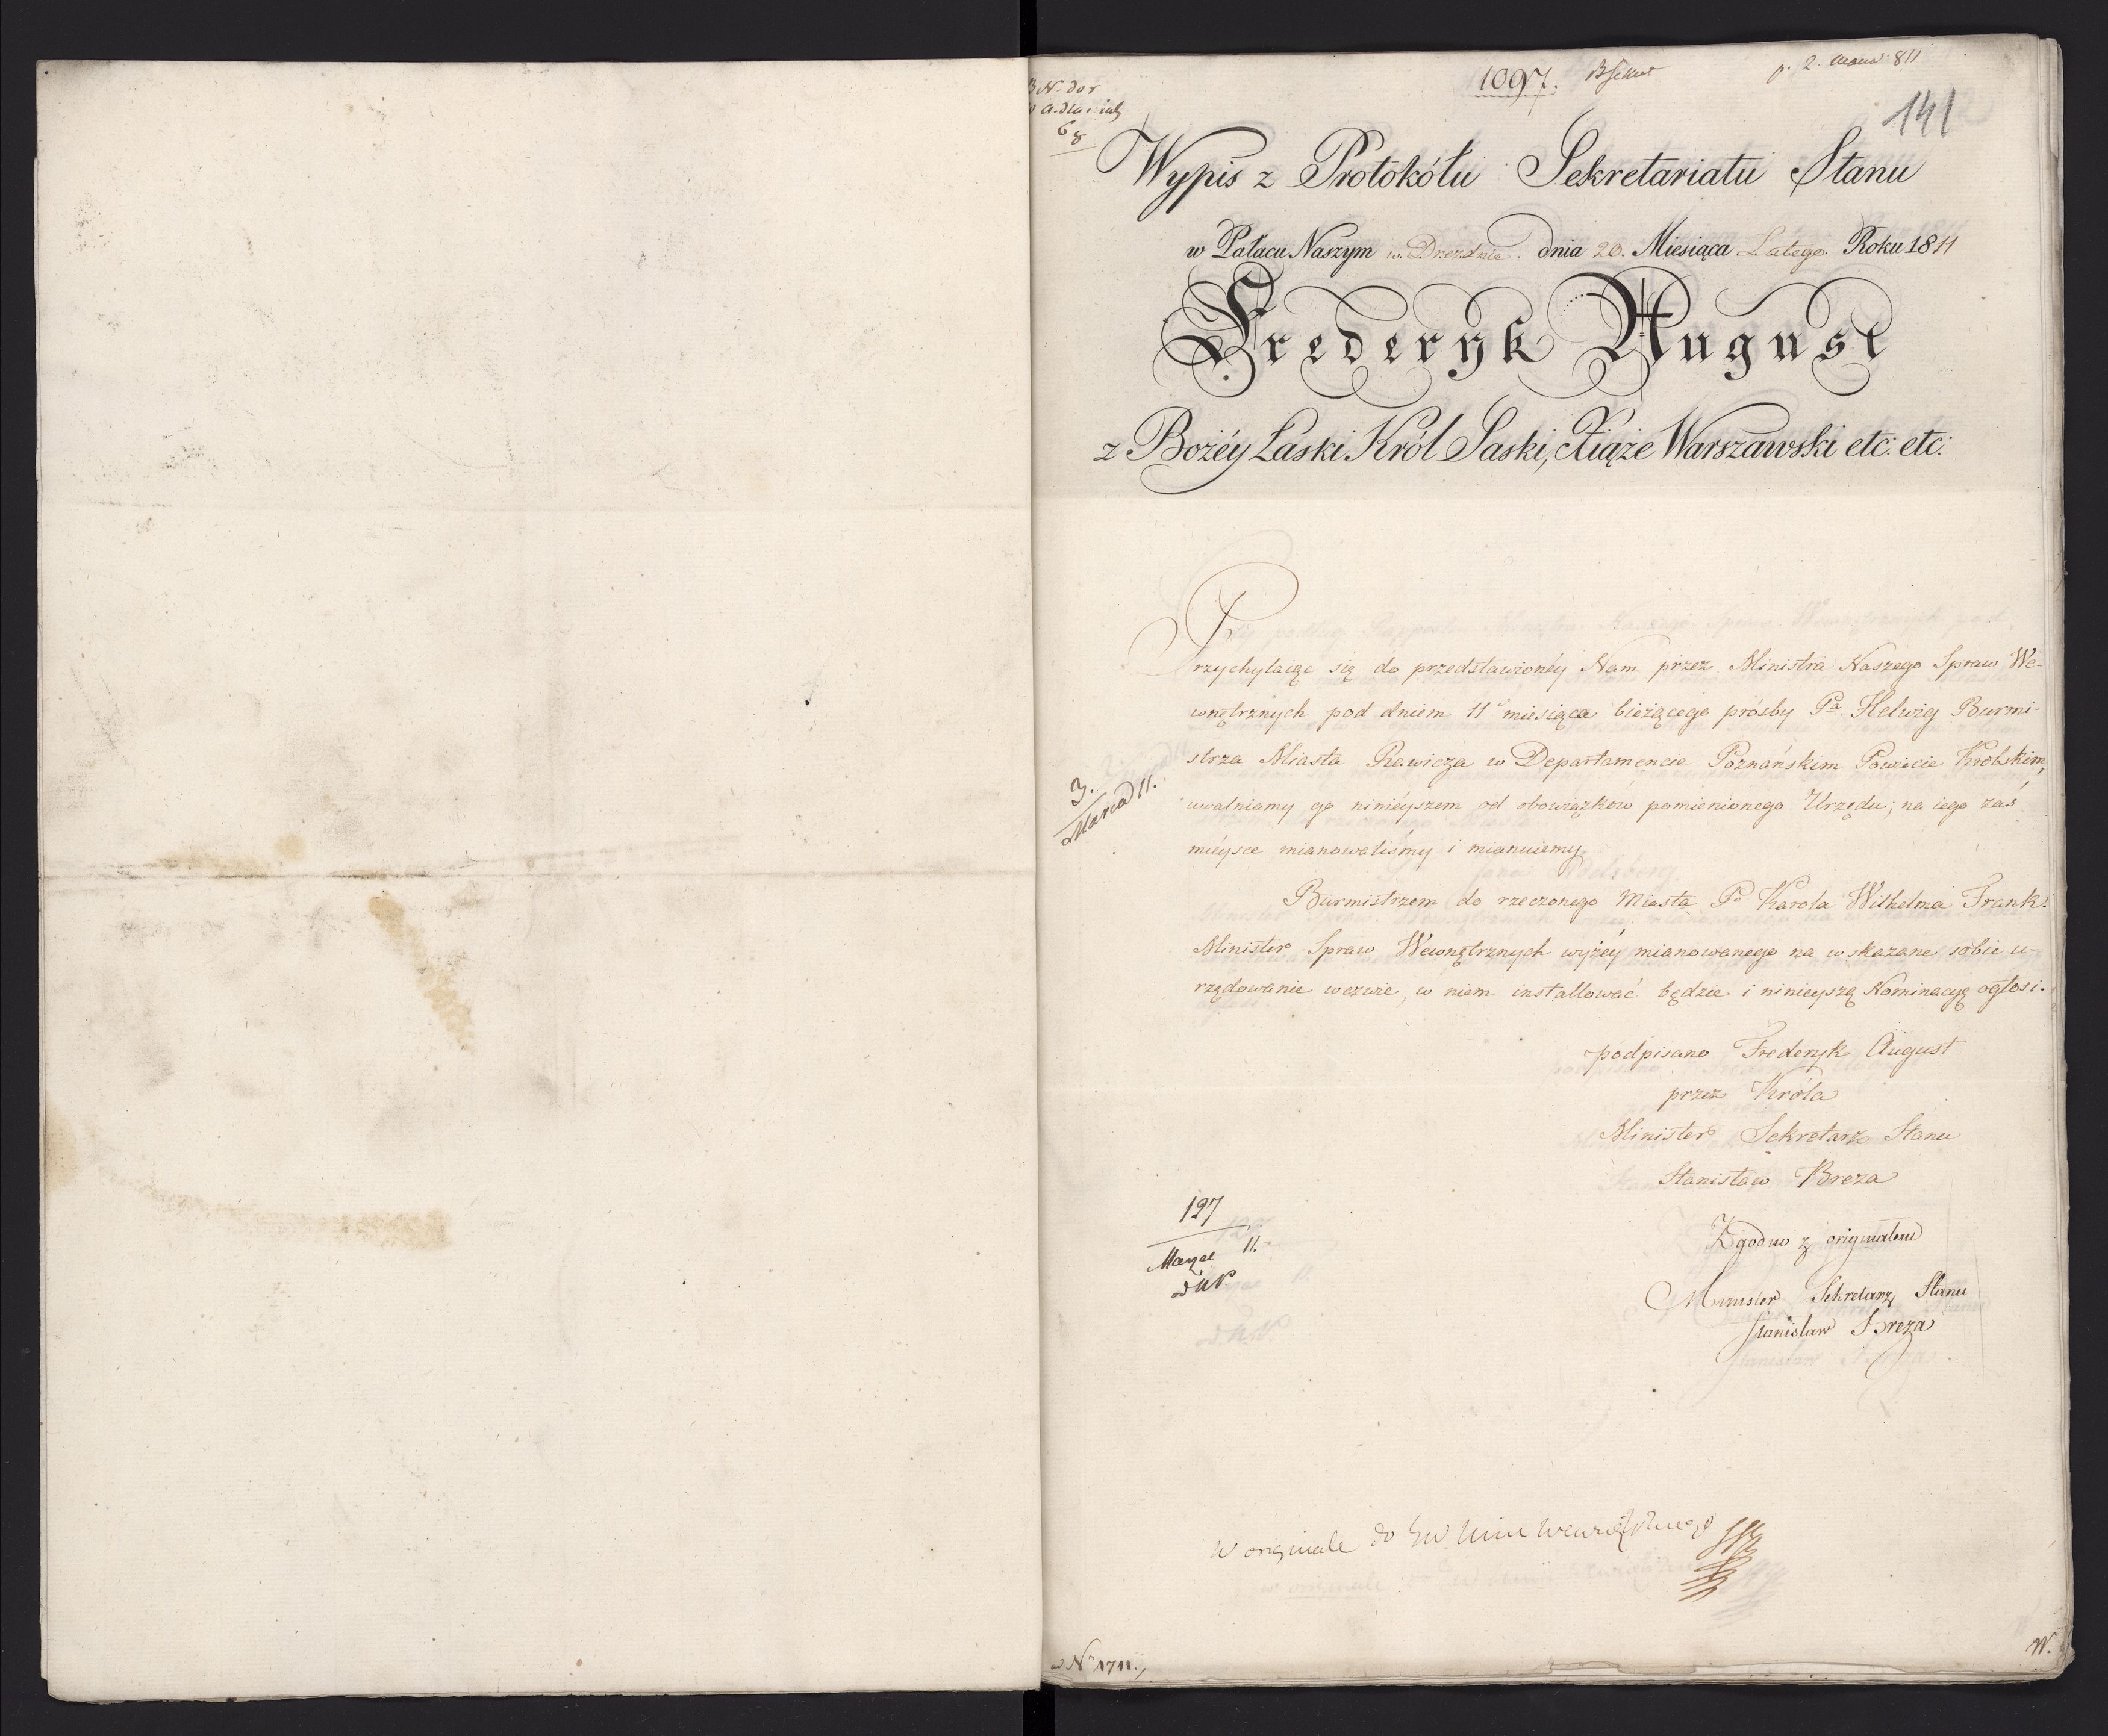 1097.
p. 2. 811
141
68
Wypis z Protokółu Sekretariatu Stanu
w Pałacu Naszym w Dreznie. dnia 20. Miesiąca Lutego. Roku 1811
Frederyk August
z Bożéy Łaski Król Saski, Xiąże Warszawski etc: etc:
Przychylaiąc się do przedstawionéy Nam przez Ministra Naszego Spraw We-
wnętrznych pod dniem 11 miesiąca bieżącego prośby Pa Helwig Burmi-
strza Miasta Rawicza w Departamencie Poznańskim Powiecie Krobskim,
uwalniamy go niniéyszem od obowiązków pomienionego Urzędu; na iego zaś
miéysce mianowaliśmy i mianuiemy
3.
Marca 11.
Burmistrzem do rzeczonego Miasta Pa Karola Wilhelma Frank.
Minister Spraw Wewnętrznych wyżéy mianowanego na wskazane sobie u-
rzędowanie wezwie, w niem installować będzie i ninieyszą Nominacyą ogłosi.
podpisano Frederyk August
przez Króla
Minister Sekretarz Stanu
Stanisław Breza
127
11.
Zgodno z oryginałem
Minister Sekretarz Stanu
Stanisław Breza
w orginale do
ad No 1711.
W.